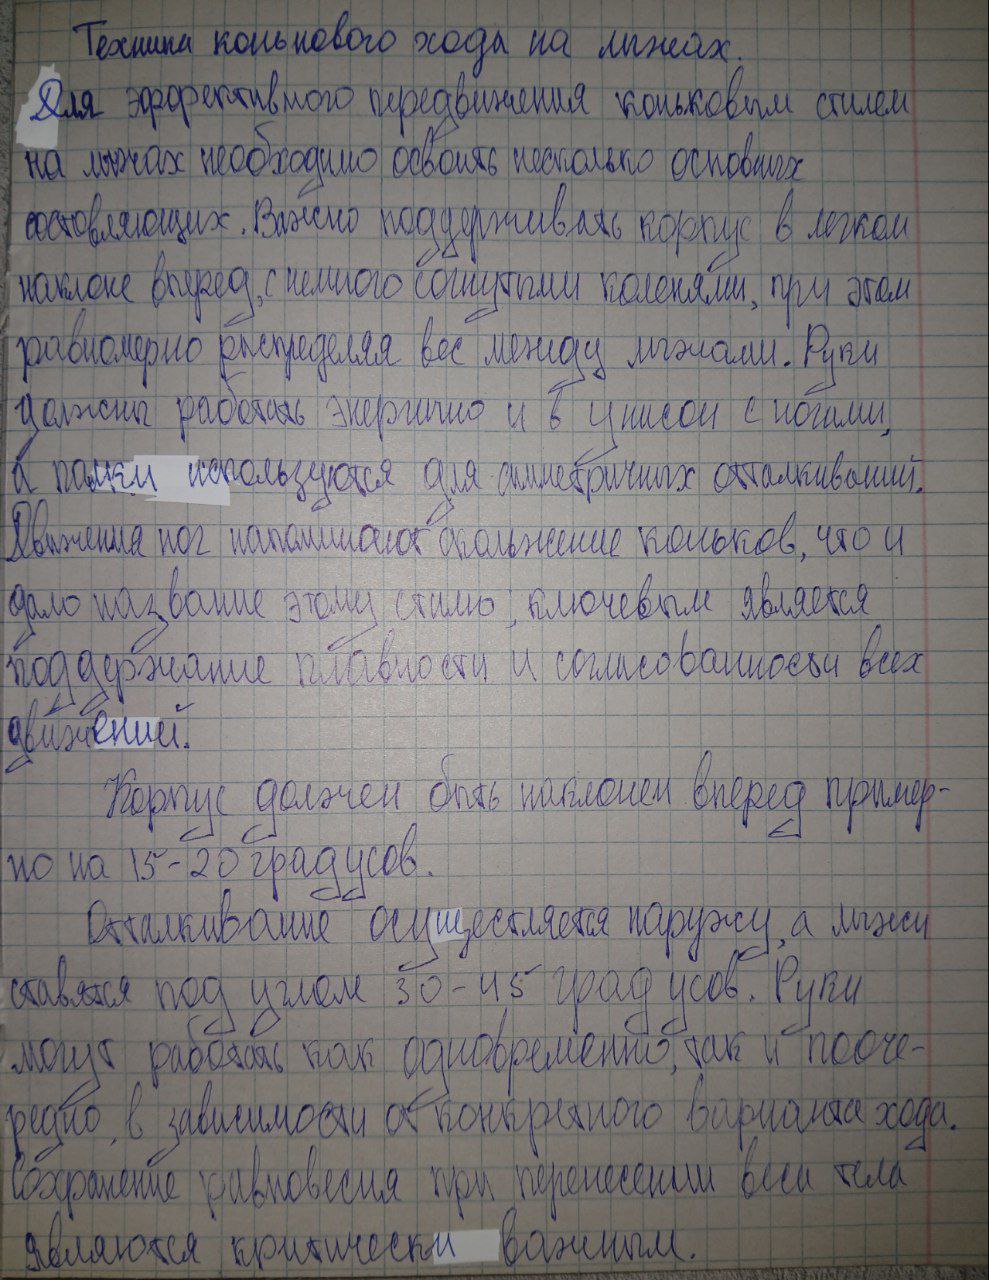 Техника конькового хода на лыжах.
Для эффективного передвижения коньковым стилем
на лыжах необходимо освоить несколько основных
составляющих. Важно поддерживать корпус в легком
наклоне вперед, с немного согнутыми коленями, при этом
равномерно распределяя вес между лыжами. Руки
должны работать энергично и в унисон с ногами,
а палки используются для симметричных отталкиваний.
Движения ног напоминают скольжение коньков, что и
дало название этому стилю; ключевым является
поддержание плавности и согласованности всех
движений.
Корпус должен быть наклонен вперед пример-
но на 15-20 градусов.
Отталкивание осуществляется наружу, а лыжи
ставятся под углом 30-45 градусов. Руки
могут работать как одновременно, так и пооче-
редно, в зависимости от конкретного варианта хода.
Сохранение равновесия при перенесении веса тела
являются критически важным.